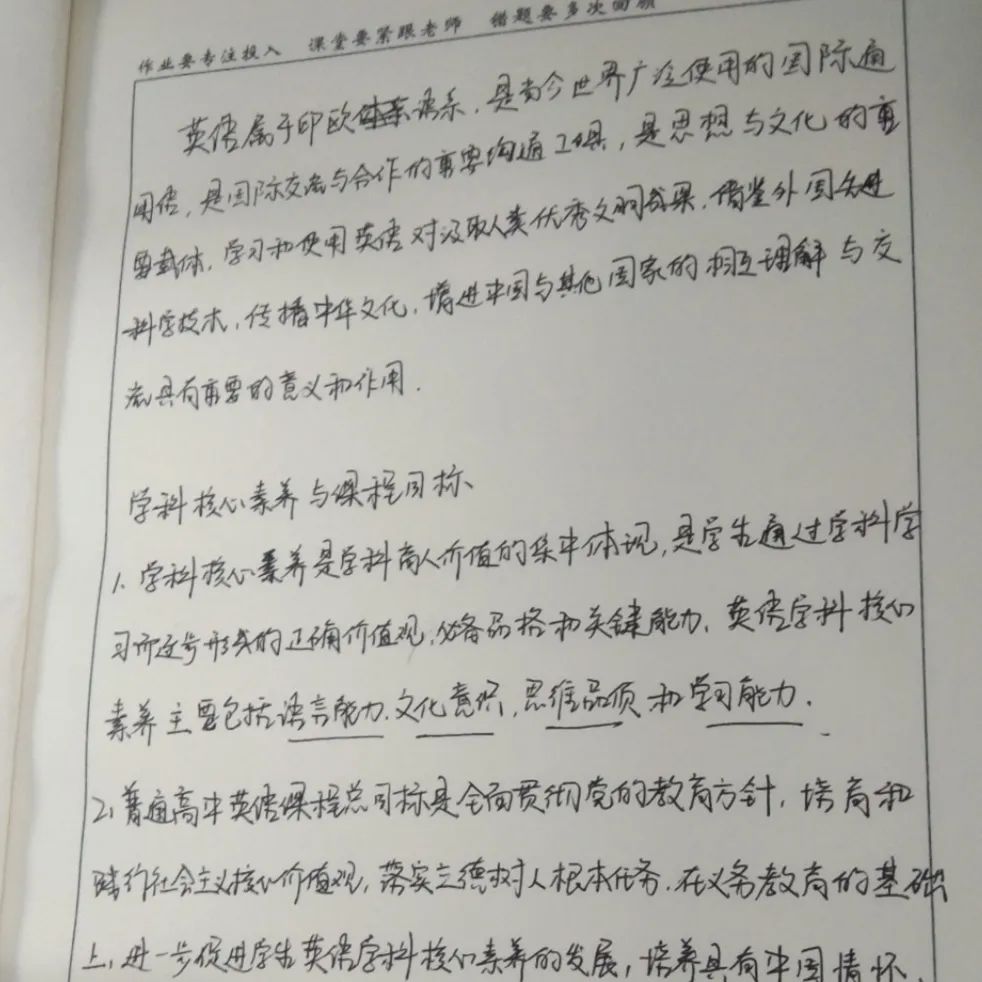 作业要专注投入 课堂要紧跟老师 错题要多次回顾
英语属于印欧语系,是当今世界广泛使用的国际通
用语,是国际交流与合作的重要沟通工具,是思想与文化的重
要载体,学习和使用英语对汲取人类优秀文明成果,借鉴外国先进
科学技术,传播中华文化,增进中国与其他国家的相互理解与交
流具有重要的意义和作用.
学科核心素养与课程目标、
1. 学科核心素养是学科育人价值的集中体现,是学生通过学科学
习而逐步形成的正确价值观,必备品格和关键能力,英语学科核心
素养主要包括语言能力,文化意识,思维品质和学习能力.
2. 普通高中英语课程总目标是全面贯彻党的教育方针,培育和
践行社会主义核心价值观,落实立德树人根本任务,在义务教育的基础
上,进一步促进学生英语学科核心素养的发展,培养具有中国情怀,